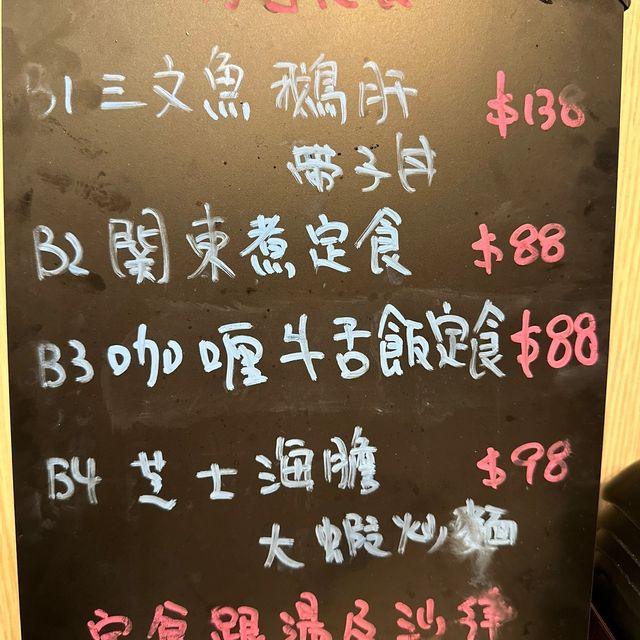 B1 三文魚鵝肝 $138
帶子丼
B2 関東煮定食 $88
B3 咖喱牛舌飯定食 $88
B4 芝士海膽 $98
大蝦炒麵
定食跟湯及沙拜